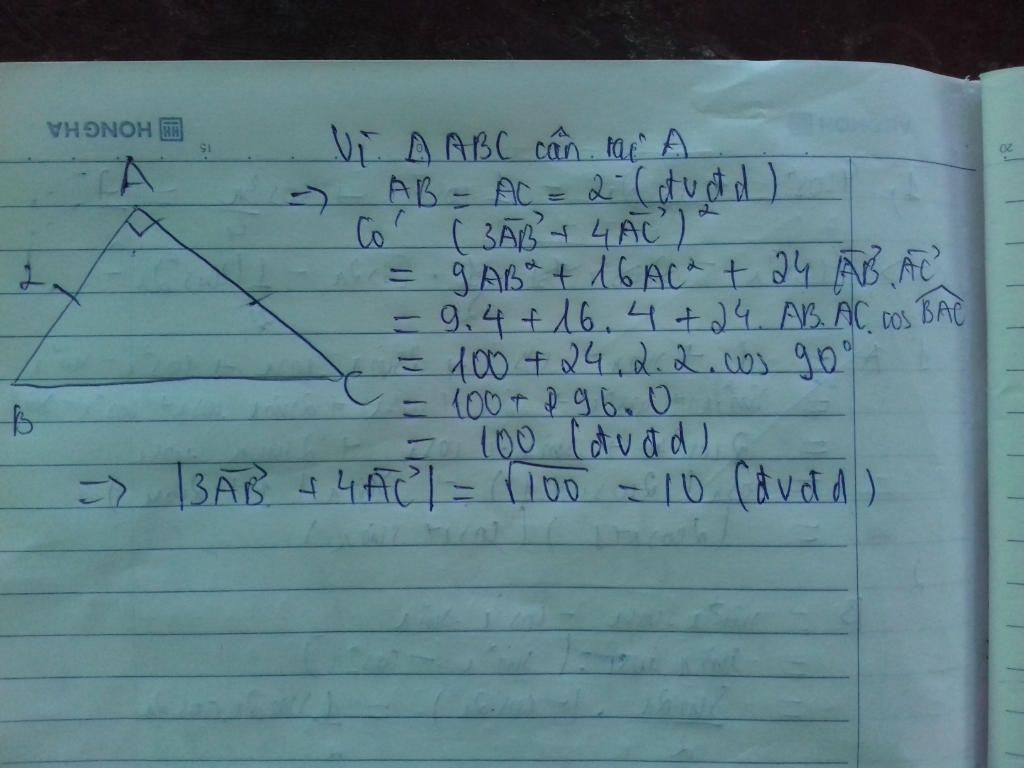 HONG HA
15
20
Vì Δ ABC cân tại A
A
=> AB = AC = 2 (đvđd)
Có (3AB→ + 4AC→)²
2
= 9AB² + 16AC² + 24 AB→.AC→
= 9.4 + 16.4 + 24. AB.AC. cos BAC
= 100 + 24.2.2. cos 90°
C
= 100 + 96.0
B
= 100 (đvđd)
=> |3AB→ + 4AC→| = √100 = 10 (đvđd)